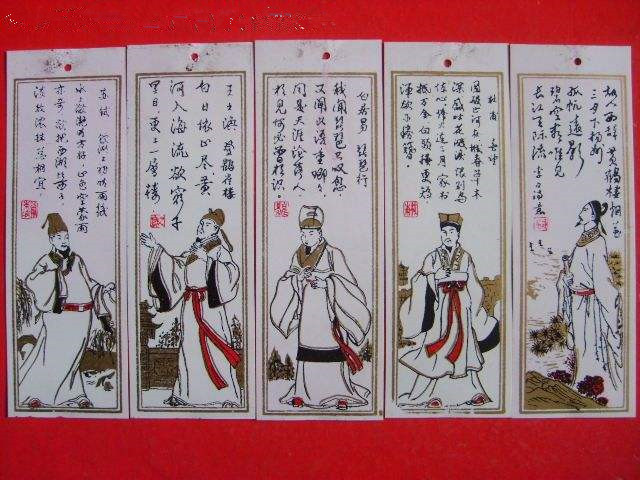 苏轼 饮湖上初晴雨后
水光潋滟晴方好 山色空蒙雨
亦奇 欲把西湖比西子
淡妆浓抹总相宜
王之涣 登鹳雀楼
白日依山尽 黄
河入海流 欲穷千
里目 更上一层楼
白居易 琵琶行
我闻琵琶已叹息
又闻此语重唧唧
同是天涯沦落人
相逢何必曾相识
杜甫 春望
国破山河在 城春草木
深 感时花溅泪 恨别鸟
惊心 烽火连三月 家书
抵万金 白头搔更短
浑欲不胜簪
故人西辞黄鹤楼 烟花
三月下扬州
孤帆远影
碧空尽 唯见
长江天际流 李白诗意